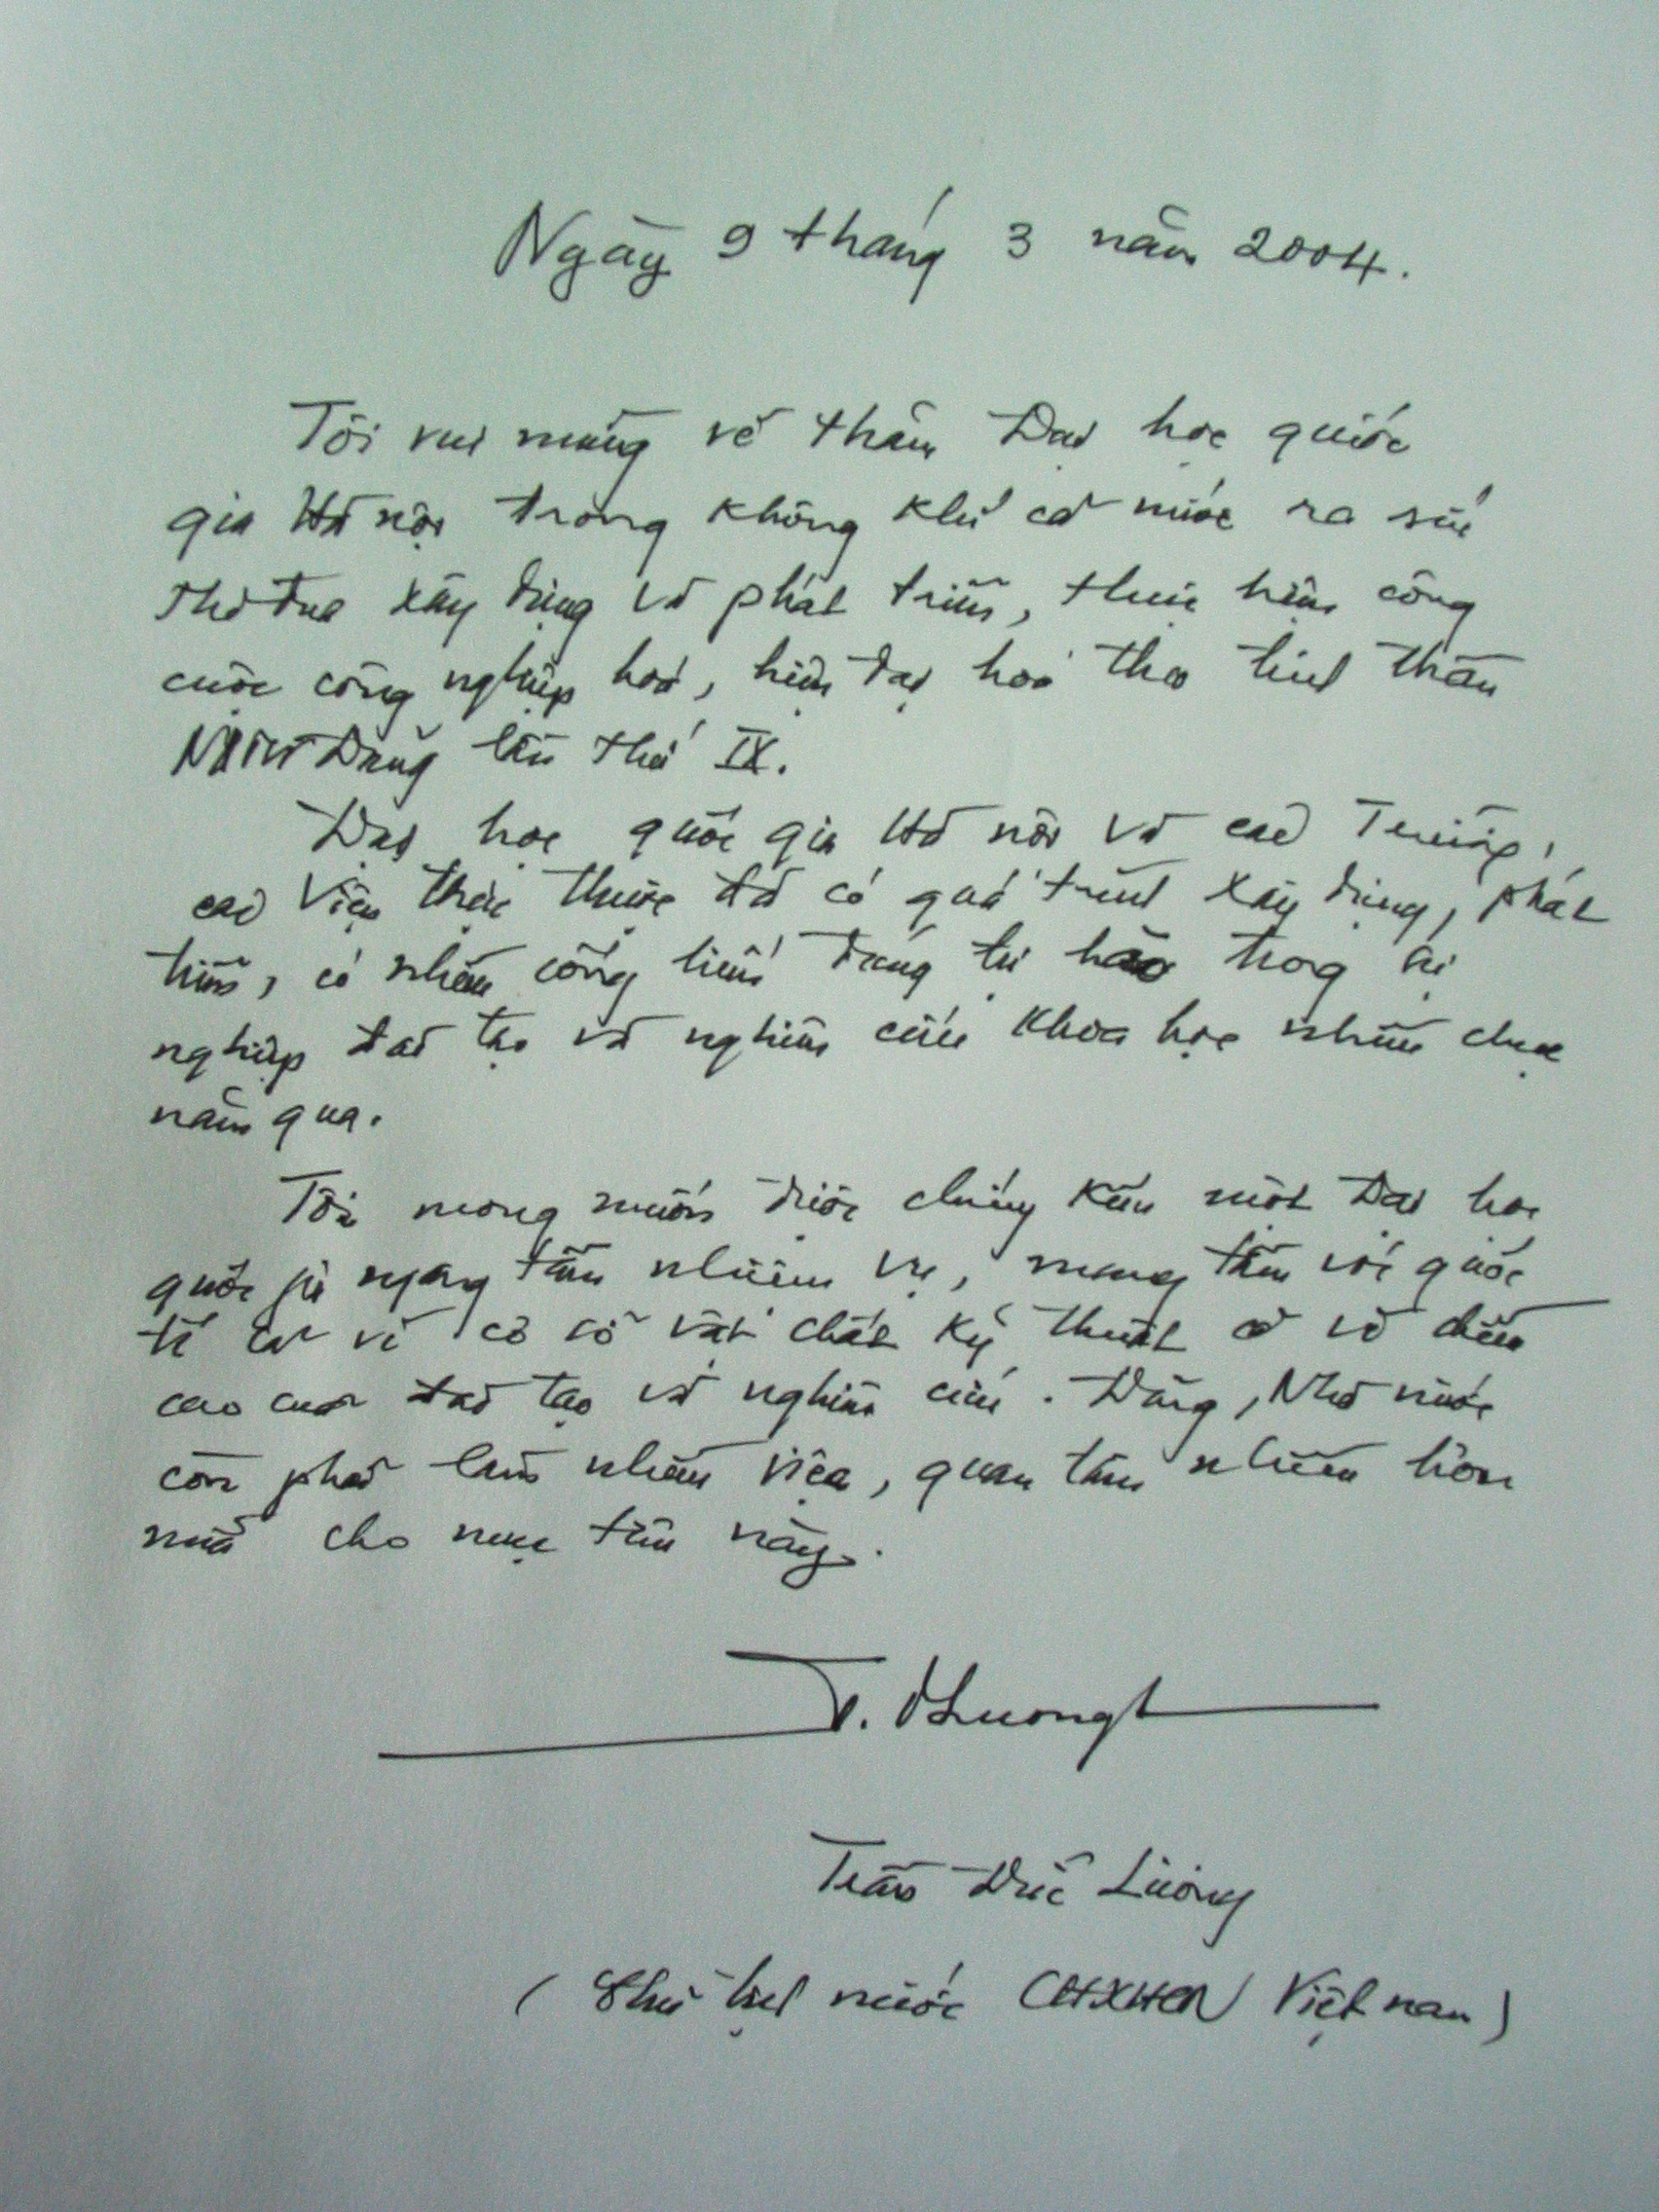 Ngày 9 tháng 3 năm 2004.
Tôi vui mừng về thăm Đại học quốc
gia Hà nội trong không khí cả nước ra sức
thi đua xây dựng và phát triển, thực hiện công
cuộc công nghiệp hoá, hiện đại hoá theo tinh thần
Đảng lần thứ IX.
Đại học quốc gia Hà nội và các Trường,
các Viện trực thuộc đã có quá trình xây dựng, phát
triển, có nhiều cống hiến đáng tự hào trong sự
nghiệp đào tạo và nghiên cứu khoa học nhiều chục
năm qua.
Tôi mong muốn được chứng kiến một Đại học
quốc gia ngang tầm nhiệm vụ, mang tầm với quốc
tế cả về cơ sở vật chất kỹ thuật và
cao của đào tạo và nghiên cứu. Đảng, Nhà nước
còn phải làm nhiều việc, quan tâm nhiều hơn
nữa cho mục tiêu này.
T. Đ Luong
Trần Đức Lương
(Chủ tịch nước CHXHCN Việt nam)